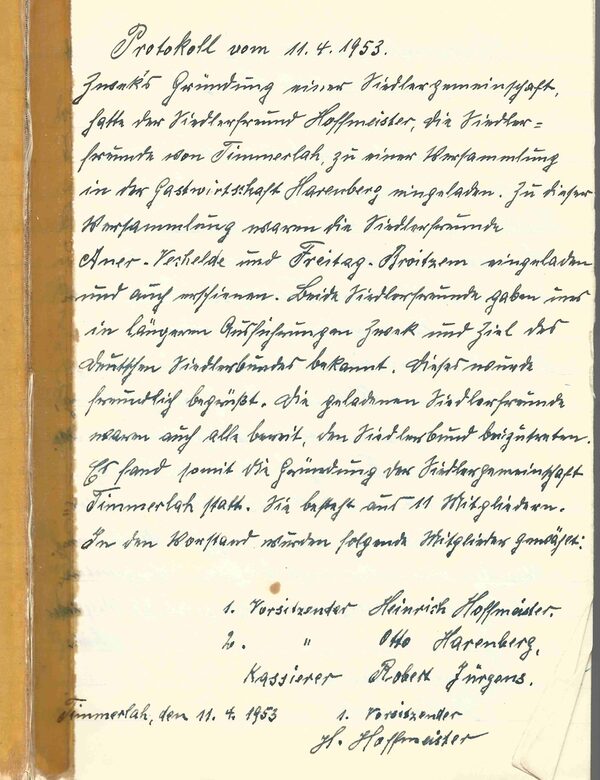 Protokoll vom 11.4.1953.
Zweks Gründung einer Siedlergemeinschaft,
hatte der Siedlerfreund Hoffmeister, die Siedler=
freunde von Timmerlah, zu einer Versammlung
in der Gastwirtschaft Harenberg eingeladen. Zu dieser
Versammlung waren die Siedlerfreunde
Auer-Vechelde und Freitag-Broitzem eingeladen
und auch erschienen. Beide Siedlerfreunde gaben uns
in längeren Ausführungen Zwek und Ziel des
deutschen Siedlerbundes bekannt. Dieses wurde
freundlich begrüßt. Die geladenen Siedlerfreunde
waren auch alle bereit, den Siedlerbund beizutreten.
Es fand somit die Gründung der Siedlergemeinschaft
Timmerlah statt. Sie besteht aus 11 Mitgliedern.
In den Vorstand wurden folgende Mitglieder gewählt:
1. Vorsitzender Heinrich Hoffmeister.
2. " Otto Harenberg,
Kassierer Robert Jürgens.
Timmerlah, den 11.4.1953 1. Vorsitzender
H. Hoffmeister